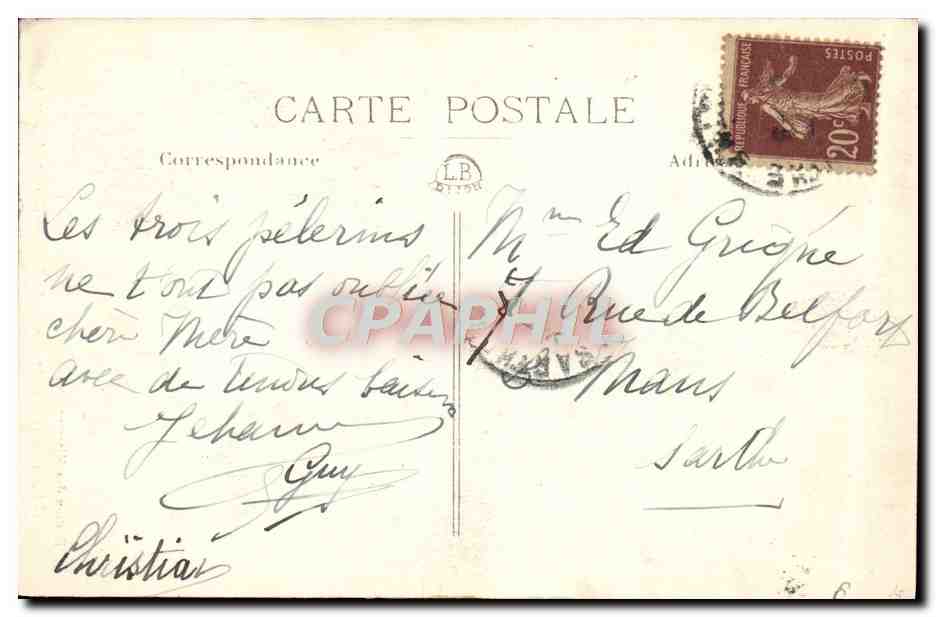 CARTE POSTALE
Correspondance
L.B
DIJON
RÉPUBLIQUE FRANÇAISE
POSTES
20c
Les trois pélerins
ne t'ont pas oubliée
chère Mère
avec de tendres baisers
Jehanne
Guy
Christian
Mme Ed Grigné
Rue de Belfort
Mans
Sarthe
CPAPHIL
SARTHE
6